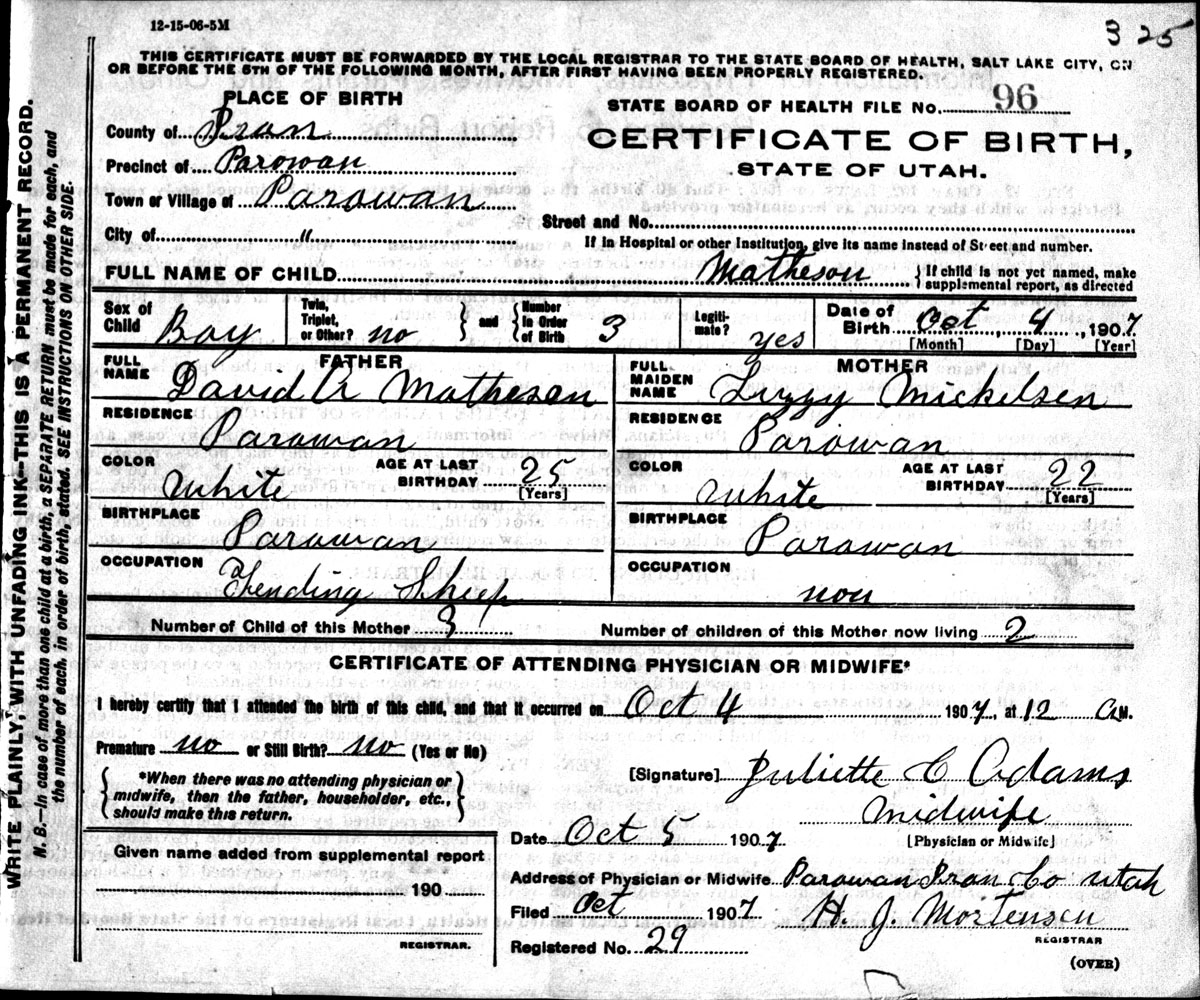 12-15-06-5M
3 25
THIS CERTIFICATE MUST BE FORWARDED BY THE LOCAL REGISTRAR TO THE STATE BOARD OF HEALTH, SALT LAKE CITY, ON
OR BEFORE THE 5TH OF THE FOLLOWING MONTH, AFTER FIRST HAVING BEEN PROPERLY REGISTERED.
PLACE OF BIRTH
STATE BOARD OF HEALTH FILE No. 96
County of Iran
CERTIFICATE OF BIRTH,
Precinct of Parowan
STATE OF UTAH.
Town or Village of Parowan
Street and No.
City of "
If in Hospital or other Institution, give its name instead of Street and number.
FULL NAME OF CHILD Matheson { If child is not yet named, make
supplemental report, as directed
Sex of Child Boy Twin, Triplet, or Other? no } and { Number In Order of Birth 3 Legiti-mate? yes Date of Birth Oct, 4, 1907
[Month] [Day] [Year]
FATHER
FULL NAME David A Matheson
RESIDENCE
Parowan
COLOR White AGE AT LAST BIRTHDAY 25
[Years]
BIRTHPLACE
Parowan
OCCUPATION
Tending Sheep
MOTHER
FULL MAIDEN NAME Lizzy Mickelsen
RESIDENCE
Parowan
COLOR White AGE AT LAST BIRTHDAY 22
[Years]
BIRTHPLACE
Parowan
OCCUPATION
non
Number of Child of this Mother 3 Number of children of this Mother now living 2
CERTIFICATE OF ATTENDING PHYSICIAN OR MIDWIFE*
I hereby certify that I attended the birth of this child, and that it occurred on Oct 4 1907, at 12 A.M.
Premature no or Still Birth? no (Yes or No)
{ *When there was no attending physician or
midwife, then the father, householder, etc.,
should make this return. }
[Signature] Juliette C Adams
Midwife
[Physician or Midwife]
Date Oct 5 1907
Address of Physician or Midwife Parowan Iran Co Utah
Filed Oct 1907 H. J. Mortensen
REGISTRAR
Registered No. 29
(OVER)
Given name added from supplemental report
190
REGISTRAR.
WRITE PLAINLY, WITH UNFADING INK--THIS IS A PERMANENT RECORD.
N. B.--In case of more than one child at a birth, a SEPARATE RETURN must be made for each, and
the number of each, in order of birth, stated. SEE INSTRUCTIONS ON OTHER SIDE.